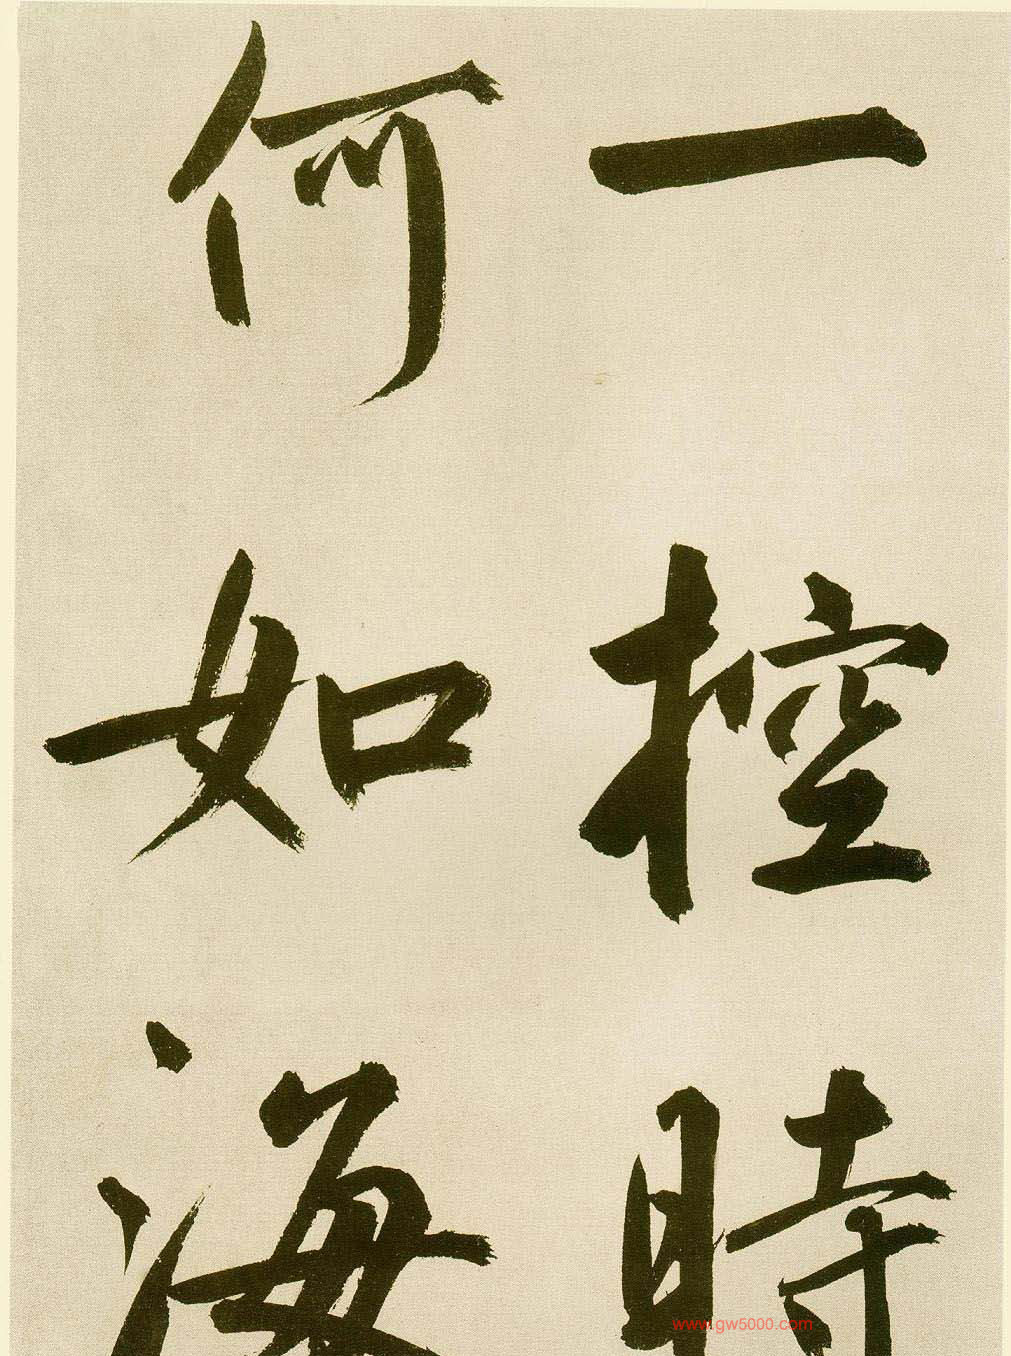 一控時
何如海
www.gw5000.com